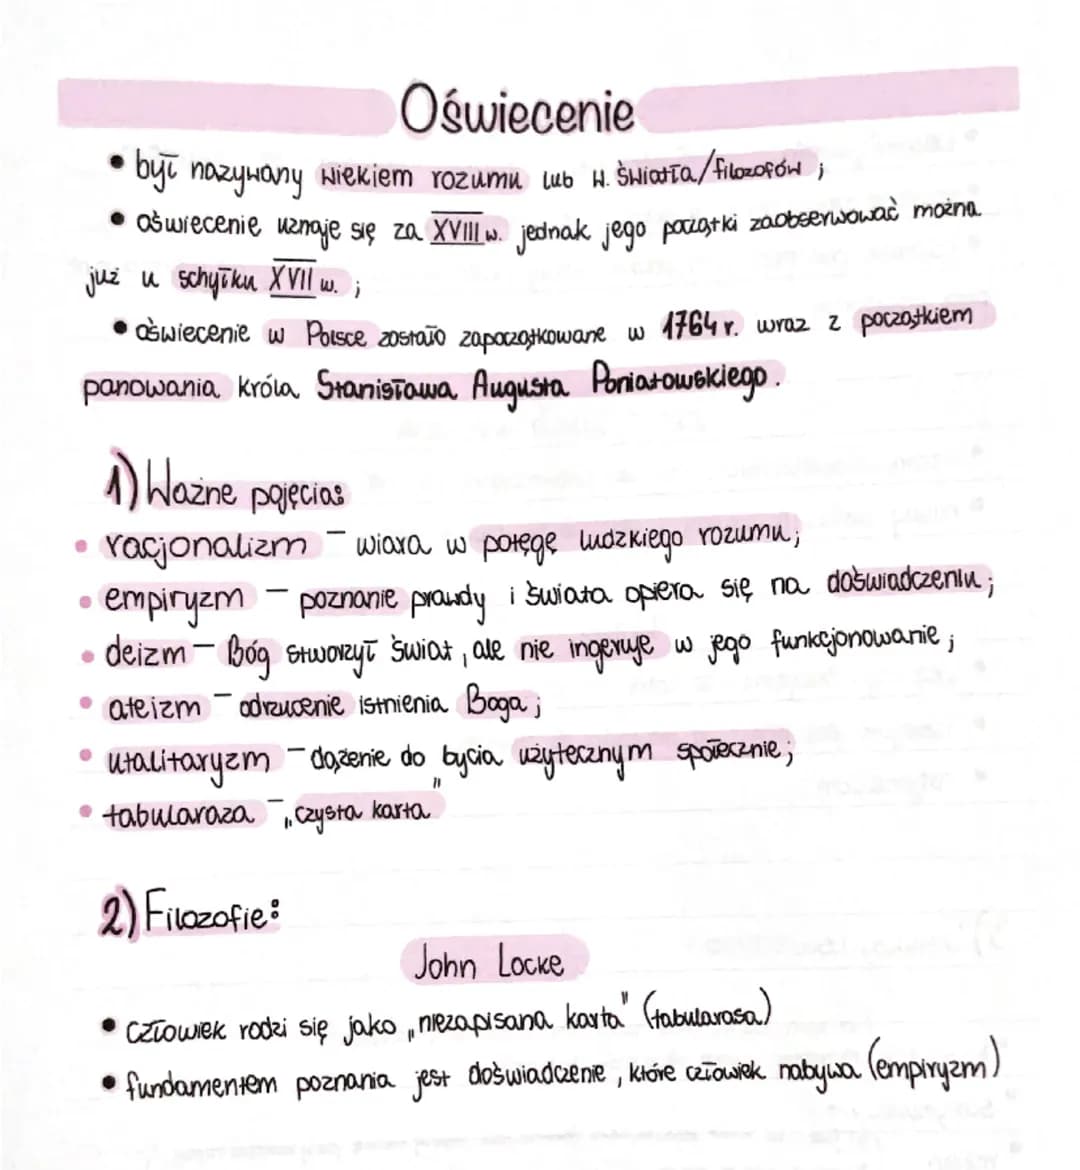 Oświecenie
• był nazywany wiekiem rozumu lub w. światła/filozofów ;
• oświecenie uznaje się za XVIII w. jednak jego początki zaobserwować można
już u schyłku XVII w. ;
• oświecenie w Polsce zostało zapoczątkowane w 1764 r. wraz z początkiem
panowania króla Stanisława Augusta Poniatowskiego.
1) Ważne pojęcia:
• racjonalizm – wiara w potęgę ludzkiego rozumu;
• empiryzm – poznanie prawdy i świata opiera się na doświadczeniu;
• deizm – Bóg stworzył świat, ale nie ingeruje w jego funkcjonowanie;
• ateizm – odrzucenie istnienia Boga;
• utalitaryzm – dążenie do bycia użytecznym społecznie;
• tabularaza – „czysta karta"
2) Filozofie:
John Locke
• człowiek rodzi się jako „niezapisana karta" (tabularasa)
• fundamentem poznania jest doświadczenie, które człowiek nabywa (empiryzm)